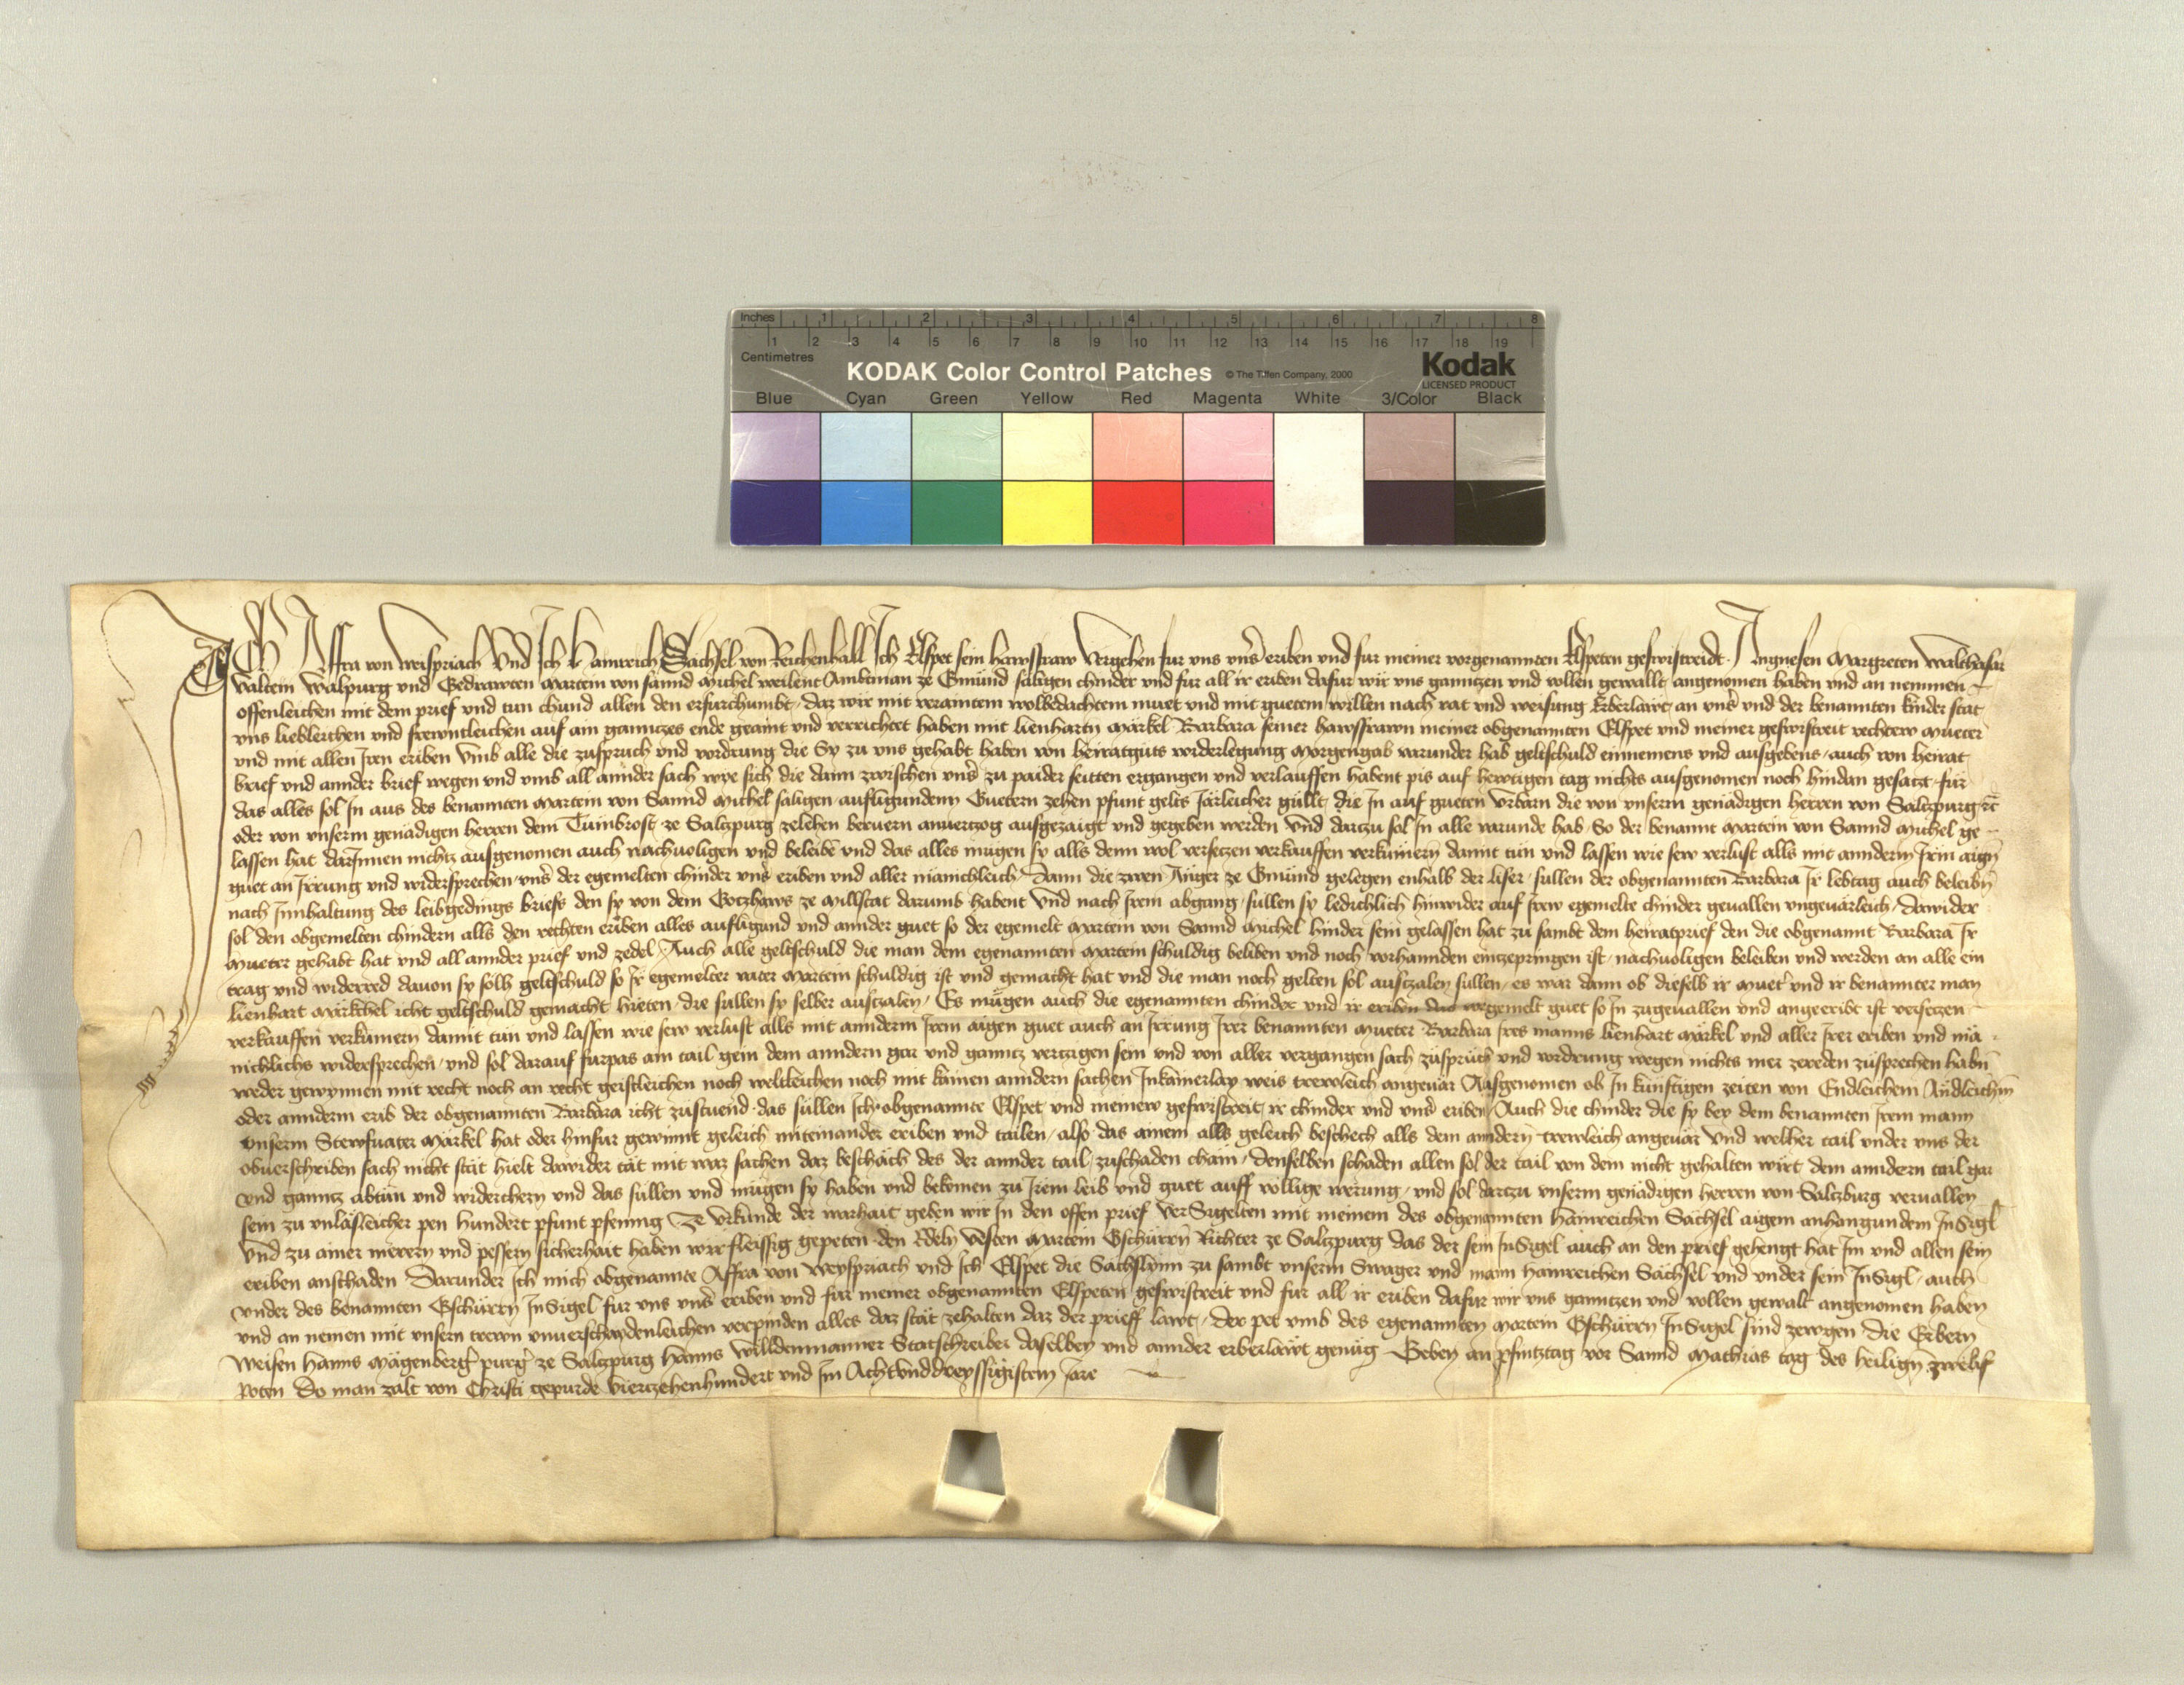 Inches 1 2 3 4 5 6 7 8
1 2 3 4 5 6 7 8 9 10 11 12 13 14 15 16 17 18 19
Centimetres
KODAK Color Control Patches © The Tiffen Company, 2000 Kodak
LICENSED PRODUCT
Blue Cyan Green Yellow Red Magenta White 3/Color Black
Ich Affra von Weispriach Und Ich Hainreich Sächsel von Reichenhall Ich Elspet sein hawsfraw Vergehen fur vns vnser eriben vnd fur meiner vorgenannten Elspeten geswistreidt Angnesen Margreten Walthasar
Valtein Walpurg vnd Gedrawten Martein von sannd Michel weilent Ambtman ze Gmünd saligen chinder vnd fur all ir eriben dafur wir vns ganntzen vnd vollen gewallt angenomen haben vnd an nemmen
offenleichen mit dem prief vnd tun chund allen den erfurchumbt daz wir mit veraintem wolbedachtem muet vnd mit guetem willen nach rat vnd weisung Erberlawt an vnser vnd der benannten kinder stat
vns liebleichen vnd frewntleichen auf ain ganntzes ende geaint vnd verrichtet haben mit lienhartn Märkel Barbara seiner hawsfrawn meiner obgenannten Elspet vnd meiner geswistreit rechtew mueter
vnd mit allen Iren eriben vmb alle die zuspruch vnd vordrung die Sy zu vns gehabt haben von heiratguts widerlegung morgengab varunder hab geltschuld einnemens vnd ausgebens auch von heirat
brief vnd annder brief wegen vnd vmb all annder sach wye sich die dann zwischen vnser zu paider seitten ergangen vnd verlauffen habent pis auf hewtigen tag nichts ausgenomen noch hindan gesatzt fur
das alles sol In aus des benannten Martein von Sannd Michel saligen aufligundenn Guetern zehen pfunt gelts Järleicher güllt die In auf gueten vrbarn die von vnserm genädigen herren von Saltzpurg etc
oder von vnserm genädigen herren dem Tumbrost ze Saltzpurg zelehen berueren anuertzog ausgezaigt vnd gegeben werden vnd dartzu sol In alle varunde hab So der benannt Martein von Sannd Michel ge
lassen hat darInnen nichtz ausgenomen auch nachuoligen vnd beleiben vnd das alles mugen sy alls denn wol versetzen verkauffen verkümern damit tun vnd lassen wie sew verlust alls mit annderm Irm aign
guet an Irrung vnd widersprechen vnser der egemelten chinder vnser eriben vnd aller manichleich Dann die zwen Anger ze Gmünd gelegen enhalb der liser sullen der obgenannten Barbara Ir lebtag auch beleibn
nach Innhaltung des leibgedings briefs den sy von dem Gotzhaws ze Millstat darumb habent vnd nach Irem abgang sullen sy ledichlich hinwider auf sew egemelte chinder geuallen vngeuärleich Dawider
sol den obgemelten chindern alls den rechten eriben alles aufligund vnd annder guet so der egemelt Martein von Sannd Michel hinder sein gelassen hat zu sambt dem heiratprief den die obgenannt Barbara Ir
Mueter gehabt hat vnd all annder prief vnd zedel Auch alle geltschuld die man dem egenannten Martein schuldig beliben vnd noch vorhannden eintzepringen ist nachuoligen beleiben vnd werden an alle ein
trag vnd widerred dauon sy solh geltschuld so Ir egemelter vater Martein schuldig ist vnd gemacht hat vnd die man noch gelten sol ausrzalen sullen es war dann ob dieselb ir muter vnd ir benannter man
lienhart Märkhel icht geltschuld gemacht hieten die sullen sy selber ausrzalen Es mügen auch die egenannten chinder vnd ir eriben egemelt guet so In zugeuallen vnd angeeribt ist versetzen
verkauffen verkümern damit tun vnd lassen wie sew verlust alls mit annderm Irem aigen guet auch an Irrung Irer benannten Mueter Barbara Ires manns lienhart Märkel vnd aller Irer eriben vnd mä
nichlichs widersprechen vnd sol darauf furpas ain tail gein dem anndern gar vnd ganntz vertzigen sein vnd von aller vergangen sach züsprüch vnd vordrung wegen nichts mer zereden züsprechen habn
weder gewynnen mit recht noch an recht geistleichen noch weltleichen noch mit kainen anndern sachen Inkainerlay weis trewleich angeuär Ausgenomen ob In künftigen zeiten von Endleichem Andleichem
oder annderm erib der obgenannten Barbara icht züstuend das sullen Ich obgenannte Elspet vnd meinew geswistreit ir chinder vnd vnser eriben Auch die chinder die sy bey dem benannten Irem mann
vnserm Stewfuater Märkel hat oder hinfur gewinnt geleich miteinander eriben vnd tailen also das ainem alls geleich beschech alls dem anndern trewleich angeuär Vnd welher tail vnder vns der
obuerschriben sach nicht stät hielt dawider tät mit waz sachen daz beschäch des der annder tail zuschaden chäm denselben schaden allen sol der tail von dem nicht gehalten wirt dem anndern tail gar
vnd ganntz abtün vnd widerchern vnd das sullen vnd mügen sy haben vnd bekomen zu Irem leib vnd guet auff vollige werung vnd sol dartzu vnserm genädigen herren von Saltzburg veruallen
sein zu vnläßleicher pen hundert pfunt pfening Ze vrkunde der warhait geben wir In den offen prief Versigelten mit meinem des obgenannten Hainreichen Sächsel aigem anhangundem InSigl
Vnd zu ainer merern vnd pessern sicherhait haben wir fleissig gepeten den Edeln Vesten Martein Gschürrn Richter ze Saltzpurg das der sein InSigel auch an den prief gehengt hat Im vnd allen sein
eriben anschaden Darunder Ich mich obgenannte Affra von Weyspriach vnd Ich Elspet die Sächslynn zu sambt vnserm Swager vnd mann Hainreichen Sächsel vnd vnder sein InSigl auch
vnder des benannten Gschürrn InSigel fur vns vnser eriben vnd fur meiner obgenannten Elspeten geswistreit vnd fur all ir eriben dafur wir vns ganntzen vnd vollen gewalt angenomen haben
vnd an nemen mit vnsern trewn vnuerschaydenleichen verpinden alles daz stät zehalten daz der prieff lawt Der pet vmb des egenannten Martein Gschürrn InSigel sind zewgen die Erbern
Weisen Hanns Mägenberger purger ze Saltzpurg Hanns Willdenmanner Statschreiber daselben vnd annder erberläwt genüg Geben an pfintztag vor Sannd Mathias tag des heiligen zwelif
Poten Do man zalt von Christi gepurde Viertzehenhundert vnd Im Achtvnddreyssigistem Jare